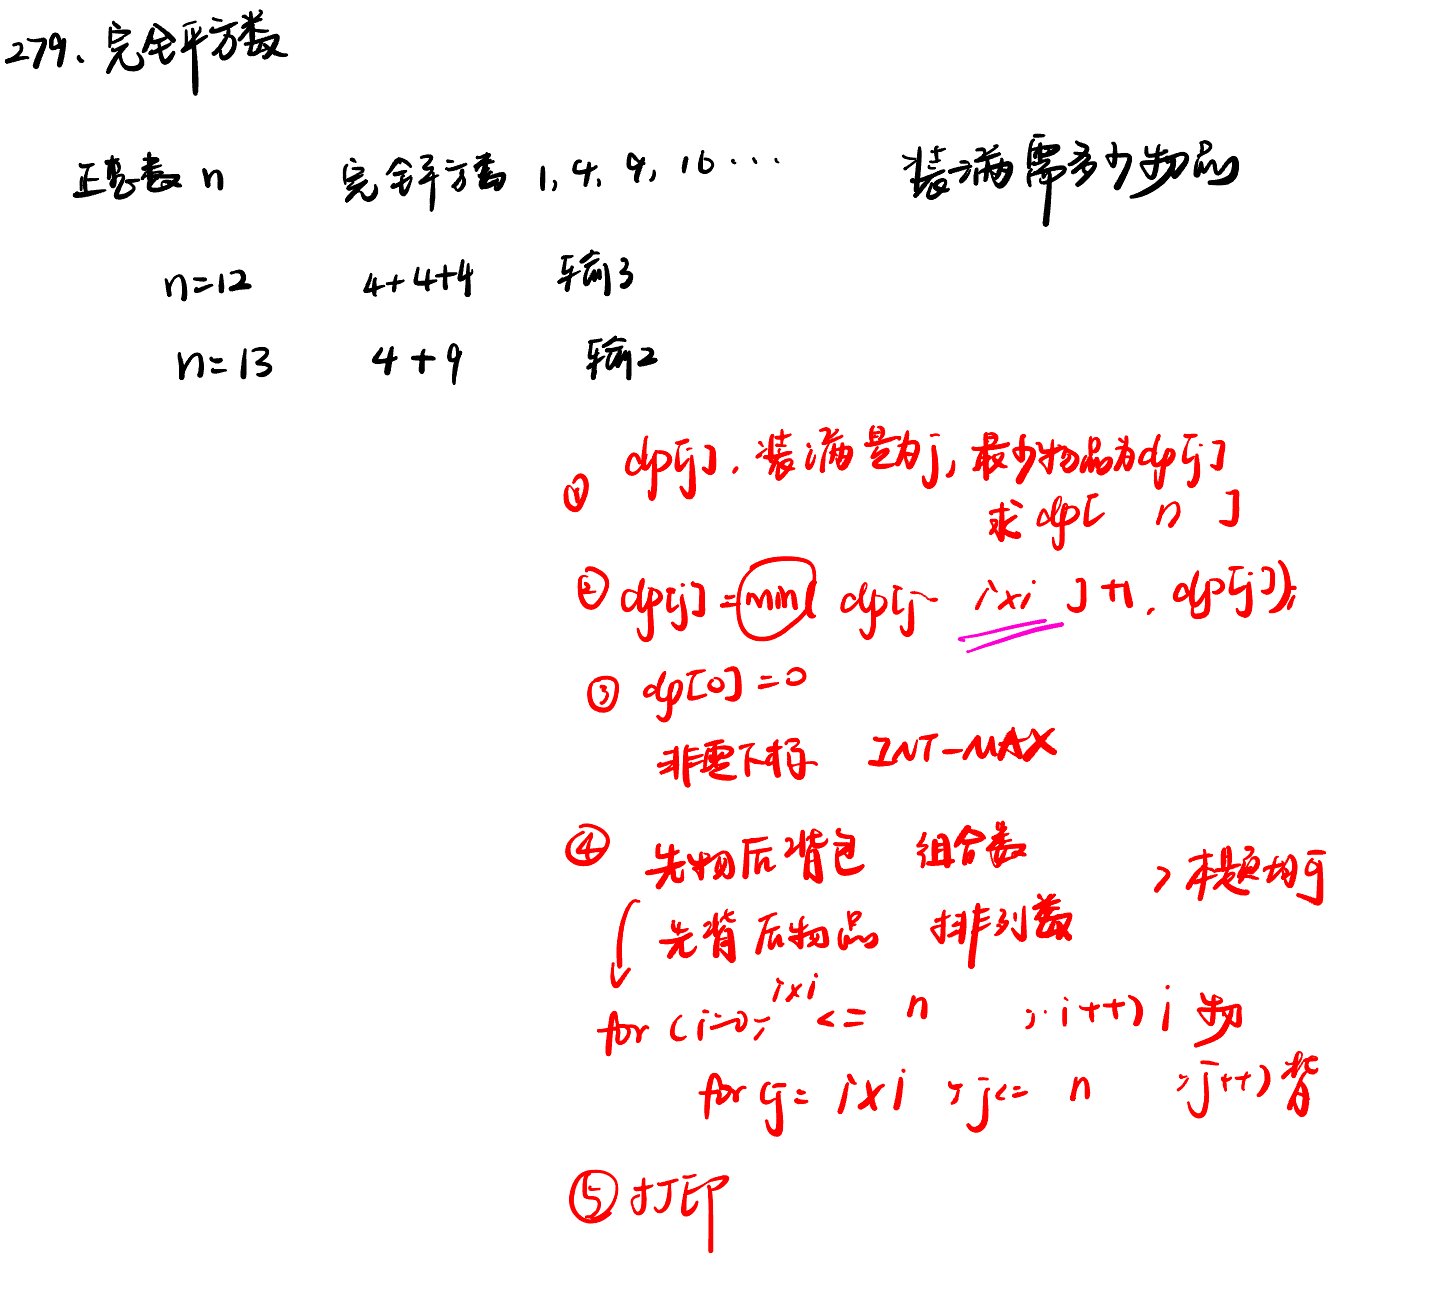 279. 完全平方数
正整数 n 完全平方数 1, 4, 9, 16 ... 装满需多少物品
n=12 4+4+4 输3
n=13 4+9 输2
① dp[j]. 装满是为j, 最少物品为dp[j]
求 dp[ n ]
② dp[j] = min( dp[j- i×i ]+1, dp[j]);
③ dp[0]=0
非零下标 INT-MAX
④ 先物后背包 组合数
先背后物品 排列数 > 本题均可
for (i=0; i×i <= n ; i++) i 物
for (j= i×i ; j<= n ; j++) 背
⑤ 打印